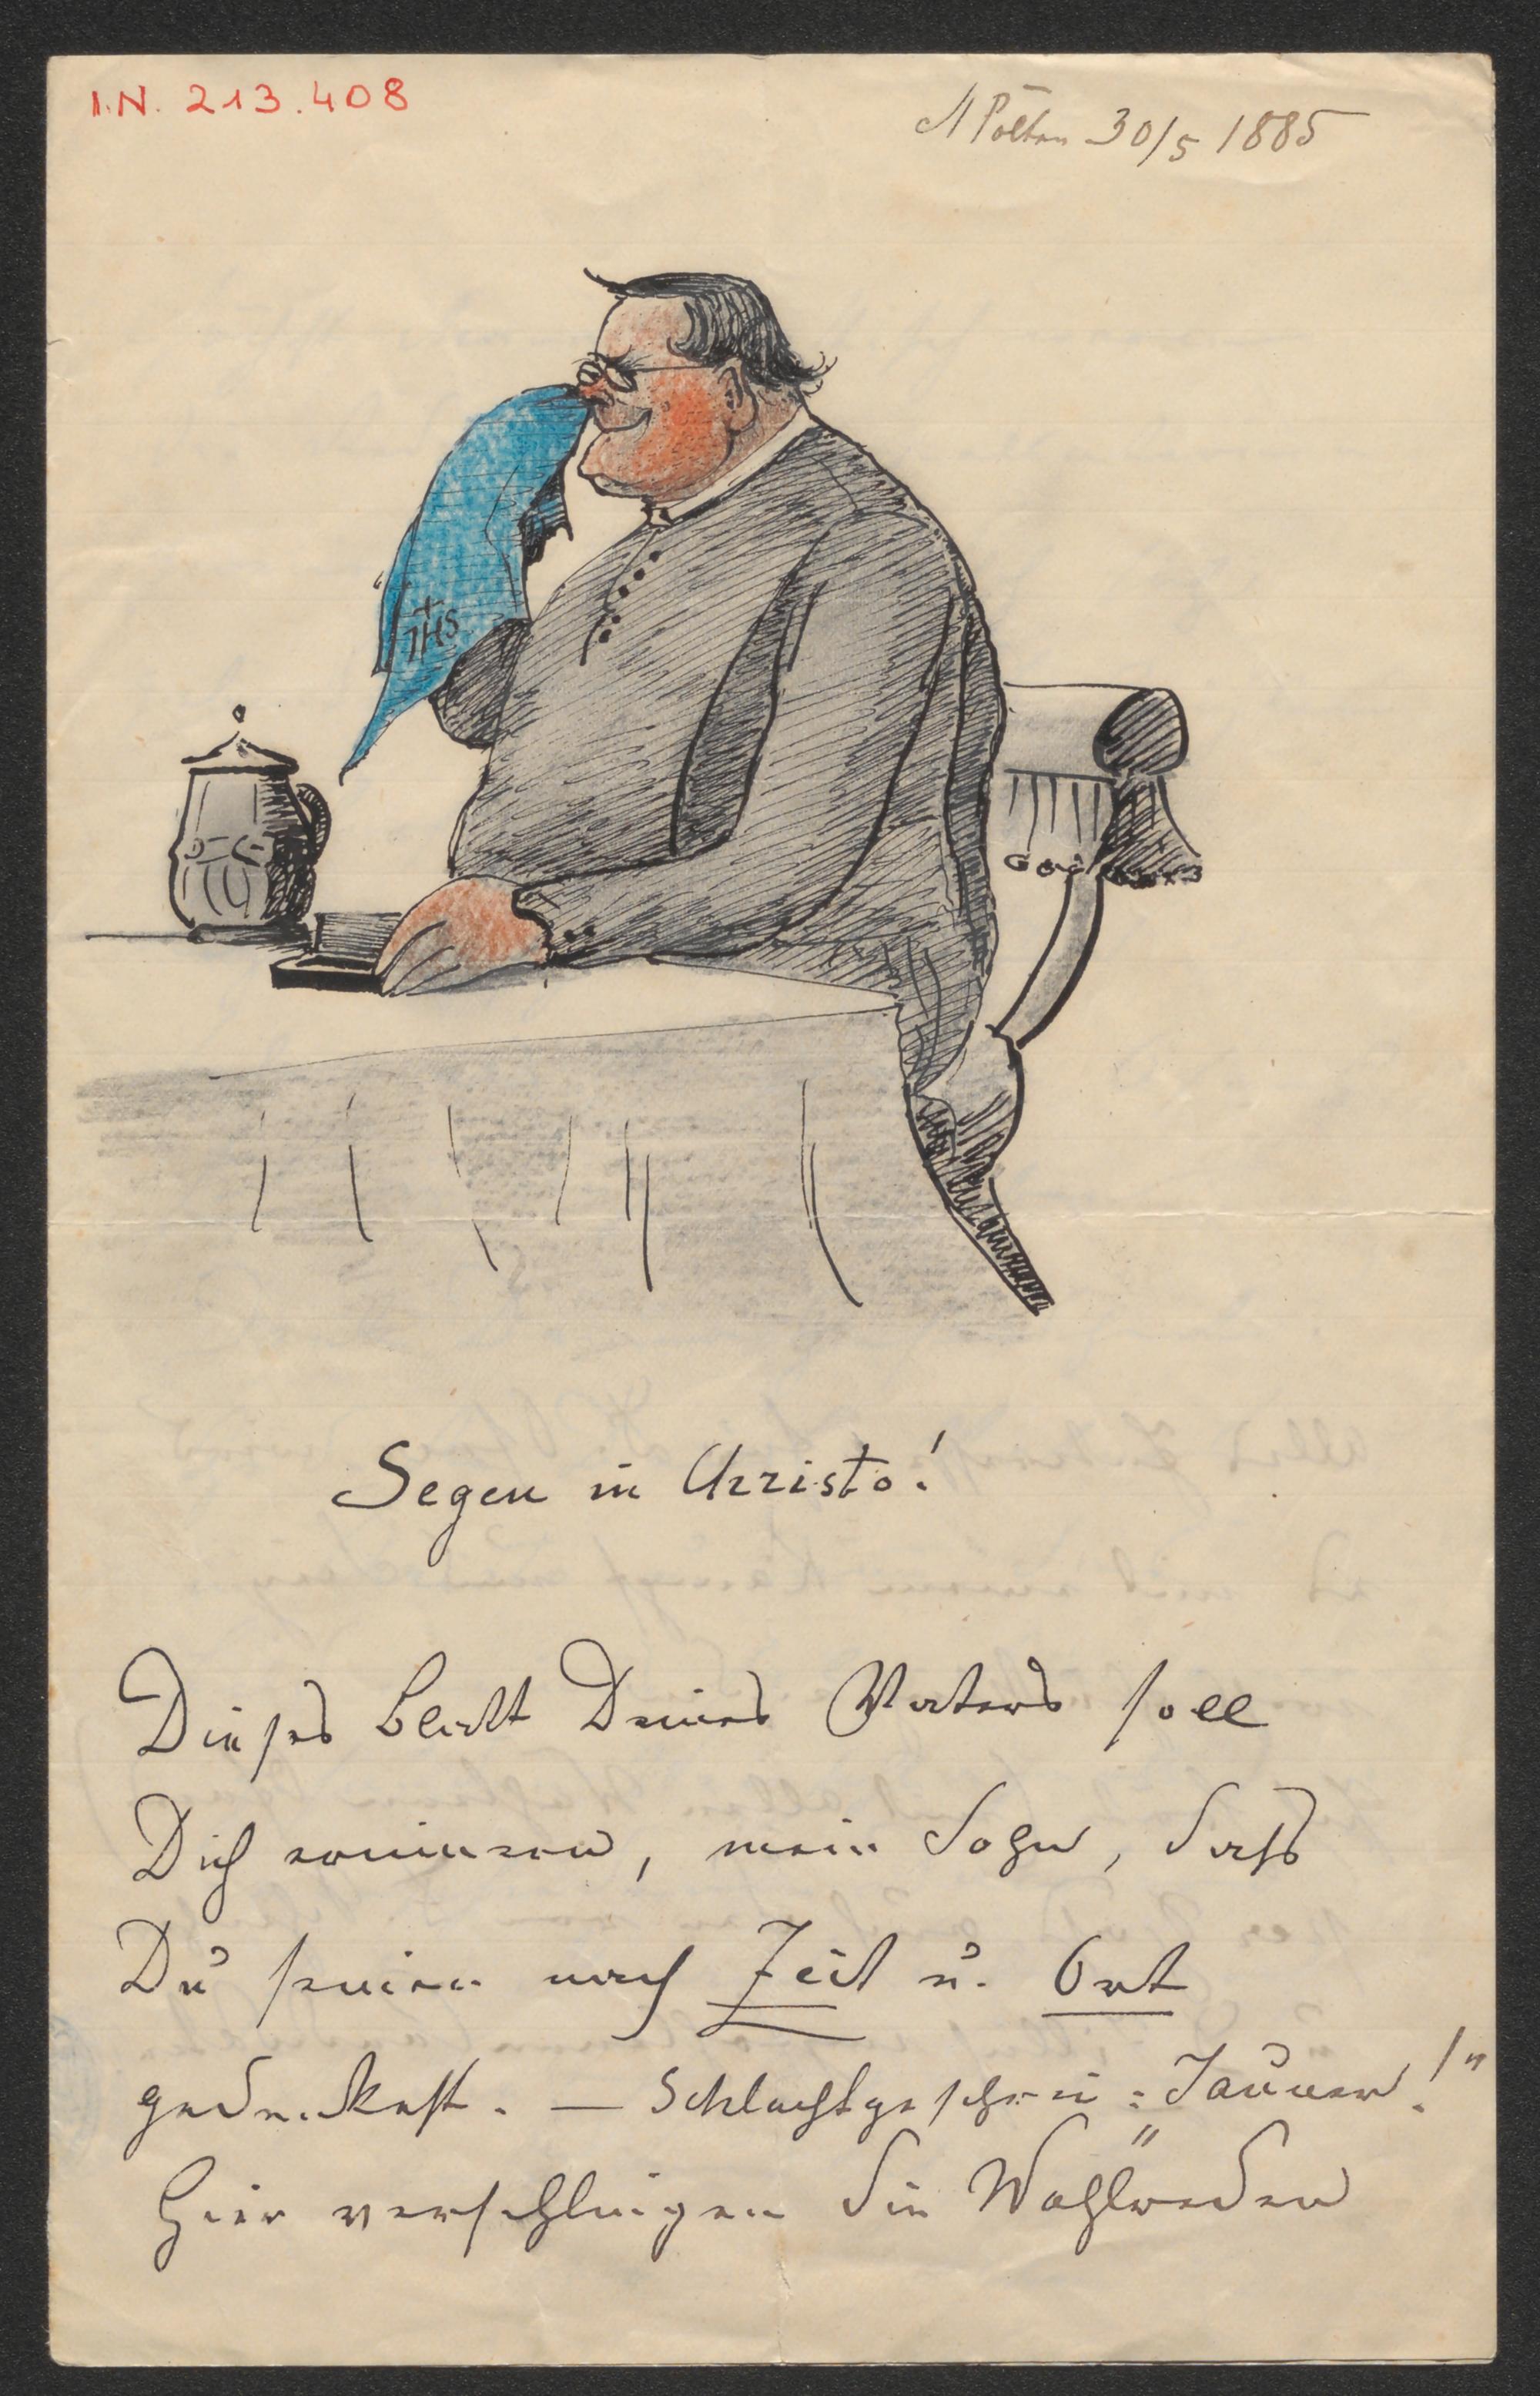 I.N. 213.408
St Pölten 30/5 1885
IHS
Segen in Christo!
Dieses Blatt Deines Vaters soll
Dich erinnern, mein Sohn, dass
Du seiner nach Zeit u. Ort
gedenkest. — Schlachtgeschrei: „Jauner!"
Hier verschlingen die Wahlreden